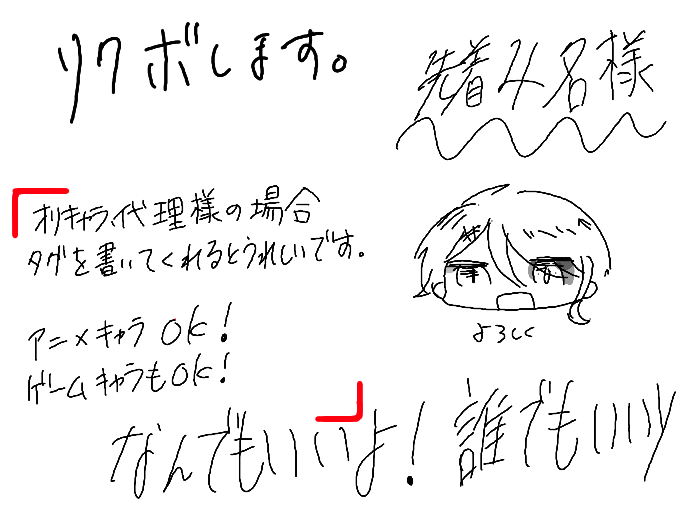 リクボします。
先着み名様
オリキャラ、代理様の場合
タグを書いてくれるとうれしいです。
よろしく
アニメキャラOK!
ゲームキャラもOK!
なんでもいいよ!誰でもいいツ